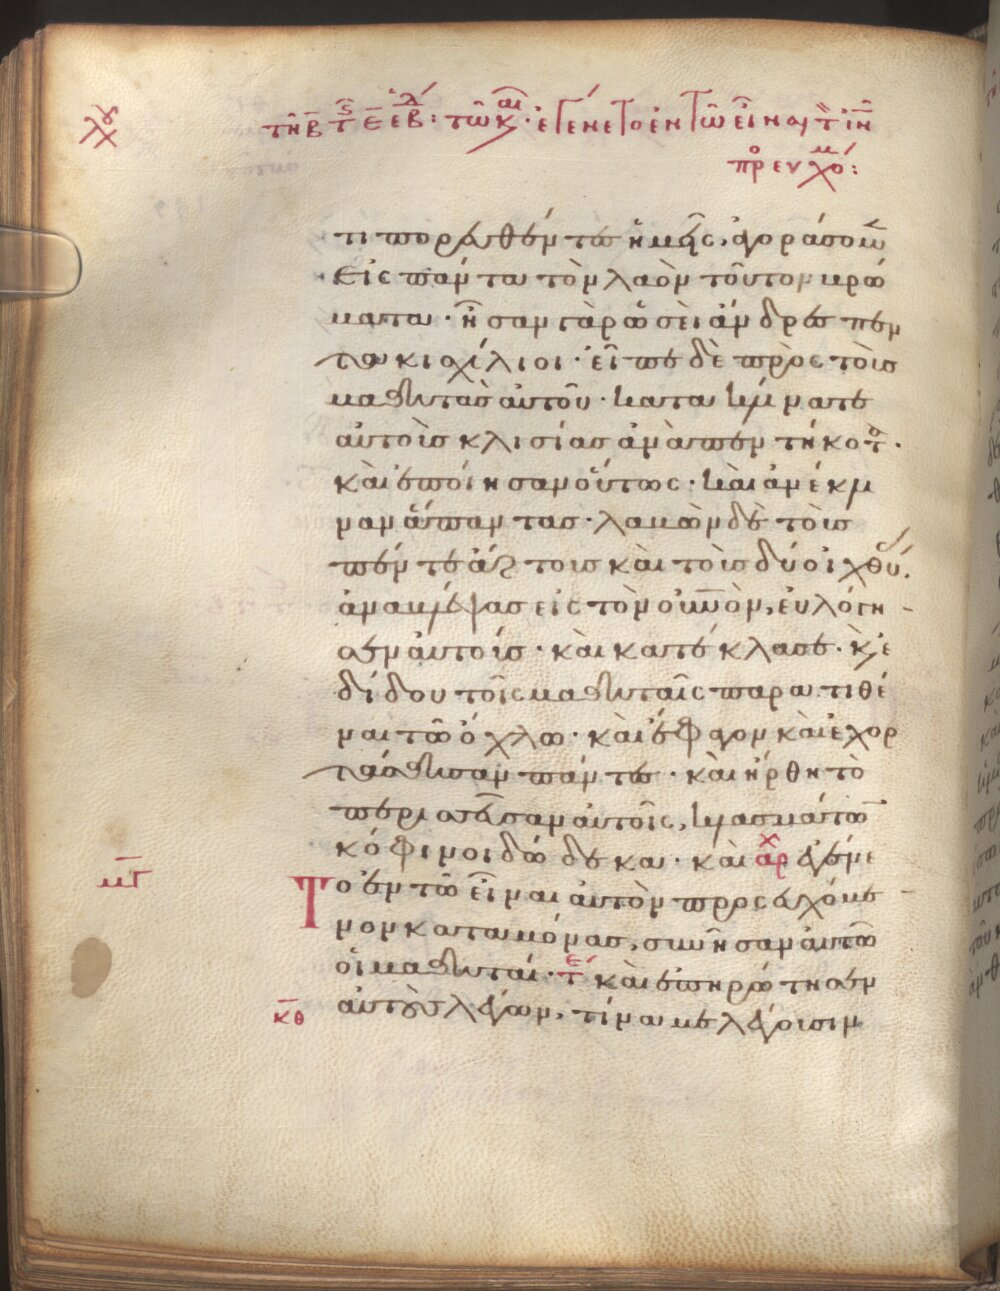 τῇ β τ ϛ ε ἑβ: τῷ καιρῷ ἐγένετο ἐν τῷ εἶναι τ ἰν
προσευχομ:
τι πορευθέντες ἡμεῖς, ἀγοράσωμ
εἰς πάντα τὸν λαὸν τοῦτον βρώ
ματα · ἦσαν γὰρ ὡσεὶ ἄνδρες πεν
τακισχίλιοι · εἶπε δὲ πρὸς τοὺς
μαθητὰς αὐτοῦ · κατακλίνατε
αὐτοὺς κλισίας ἀνὰ πεντήκοτ ·
καὶ ἐποίησαν οὕτως · καὶ ἀνέκλι
ναν ἅπαντας · λαβὼν δὲ τοὺς
πέντε ἄρτους καὶ τοὺς δύο ἰχθύ,
ἀναβλέψας εἰς τὸν οὐνὸν, εὐλόγη
σεν αὐτούς · καὶ κατέκλασε · κ ἐ
δίδου τοῖς μαθηταῖς παρατιθέ
ναι τῷ ὄχλῳ · καὶ ἔφαγον καὶ ἐχορ
τάσθησαν πάντες · καὶ ἤρθη τὸ
περισσεῦσαν αὐτοῖς, κλασμάτων
κόφινοι δώδεκα · καὶ ἀρχ ἐγένε
το ἐν τῷ εἶναι αὐτὸν προσευχόμε
μγ
νον καταμόνας, συνῆσαν αὐτῷ
οἱ μαθηταί · τε καὶ ἐπηρώτησεν
αὐτοὺς λέγων, τίνα με λέγουσιν
κθ